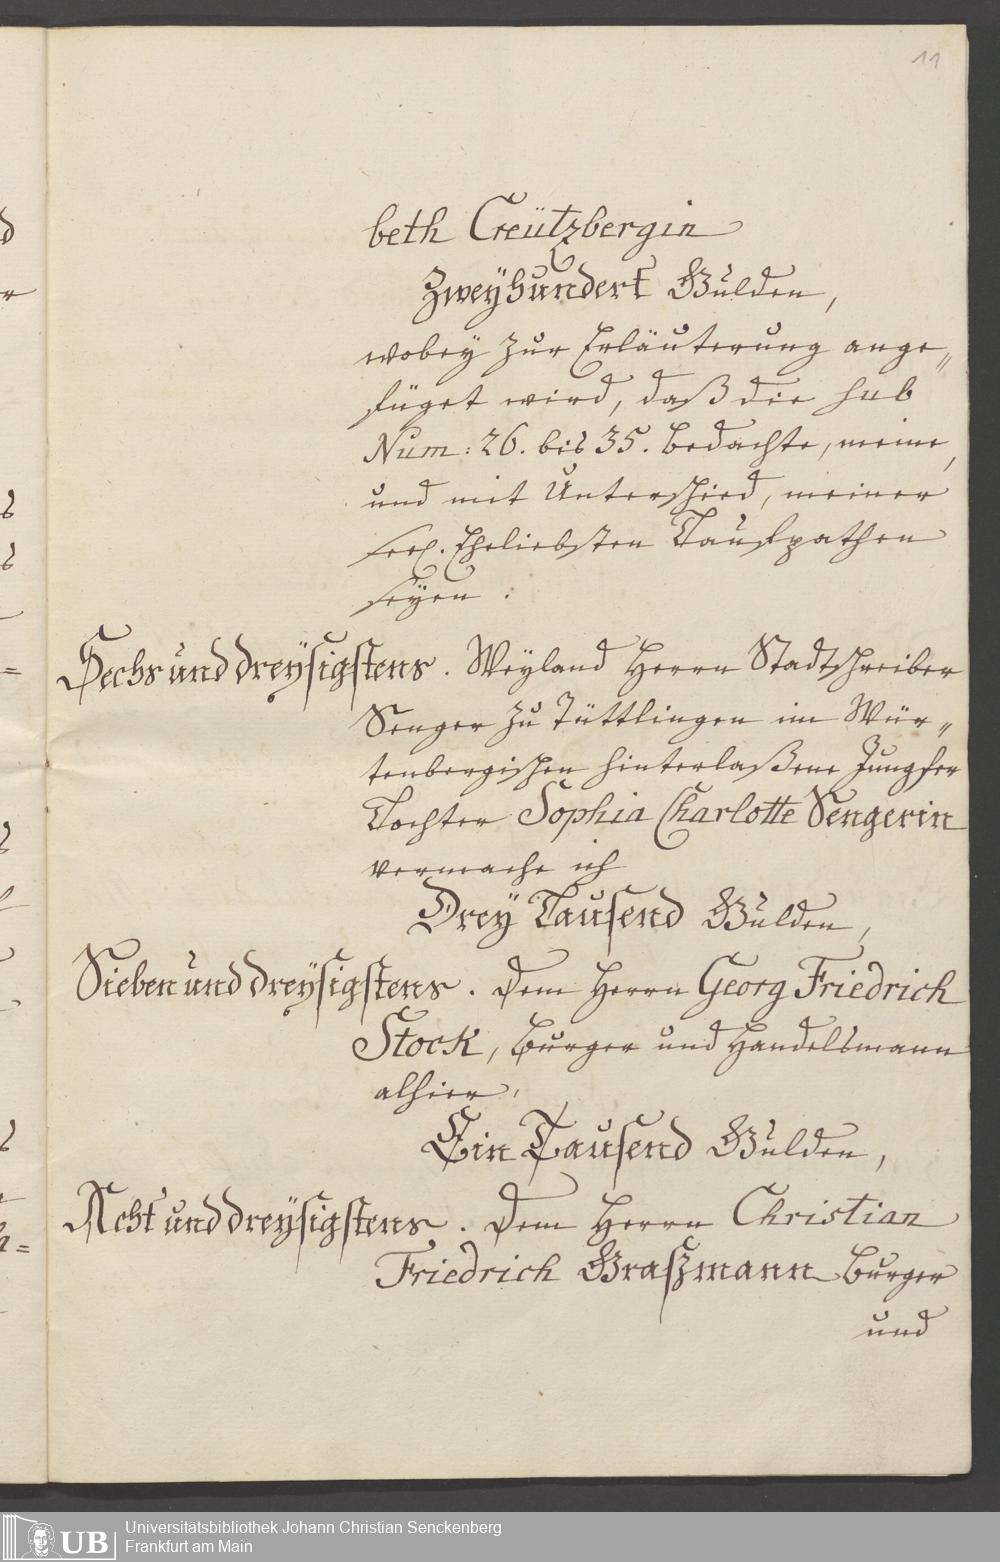 11
beth Creützbergin
Zweyhundert Gulden,
wobey zur Erläuterung ange„
füget wird, daß die sub
Num: 26. bis 35. bedachte, meine,
und mit Unterschied, meiner
seel. Eheliebsten Taufpathen
seyen.
Sechs und dreysigstens. Weyland Herrn Stadtschreiber
Senger zu Tüttlingen im Wür„
tenbergischen hinterlaßene Jungfer
Tochter Sophia Charlotte Sengerin
vermache ich
Drey Tausend Gulden,
Sieben und dreysigstens. Dem Herrn Georg Friedrich
Stock, Burger und Handelsmann
alhier,
Ein Tausend Gulden,
Acht und dreysigstens. Dem Herrn Christian
Friedrich Graszmann Burger
und
UB
Universitätsbibliothek Johann Christian Senckenberg
Frankfurt am Main